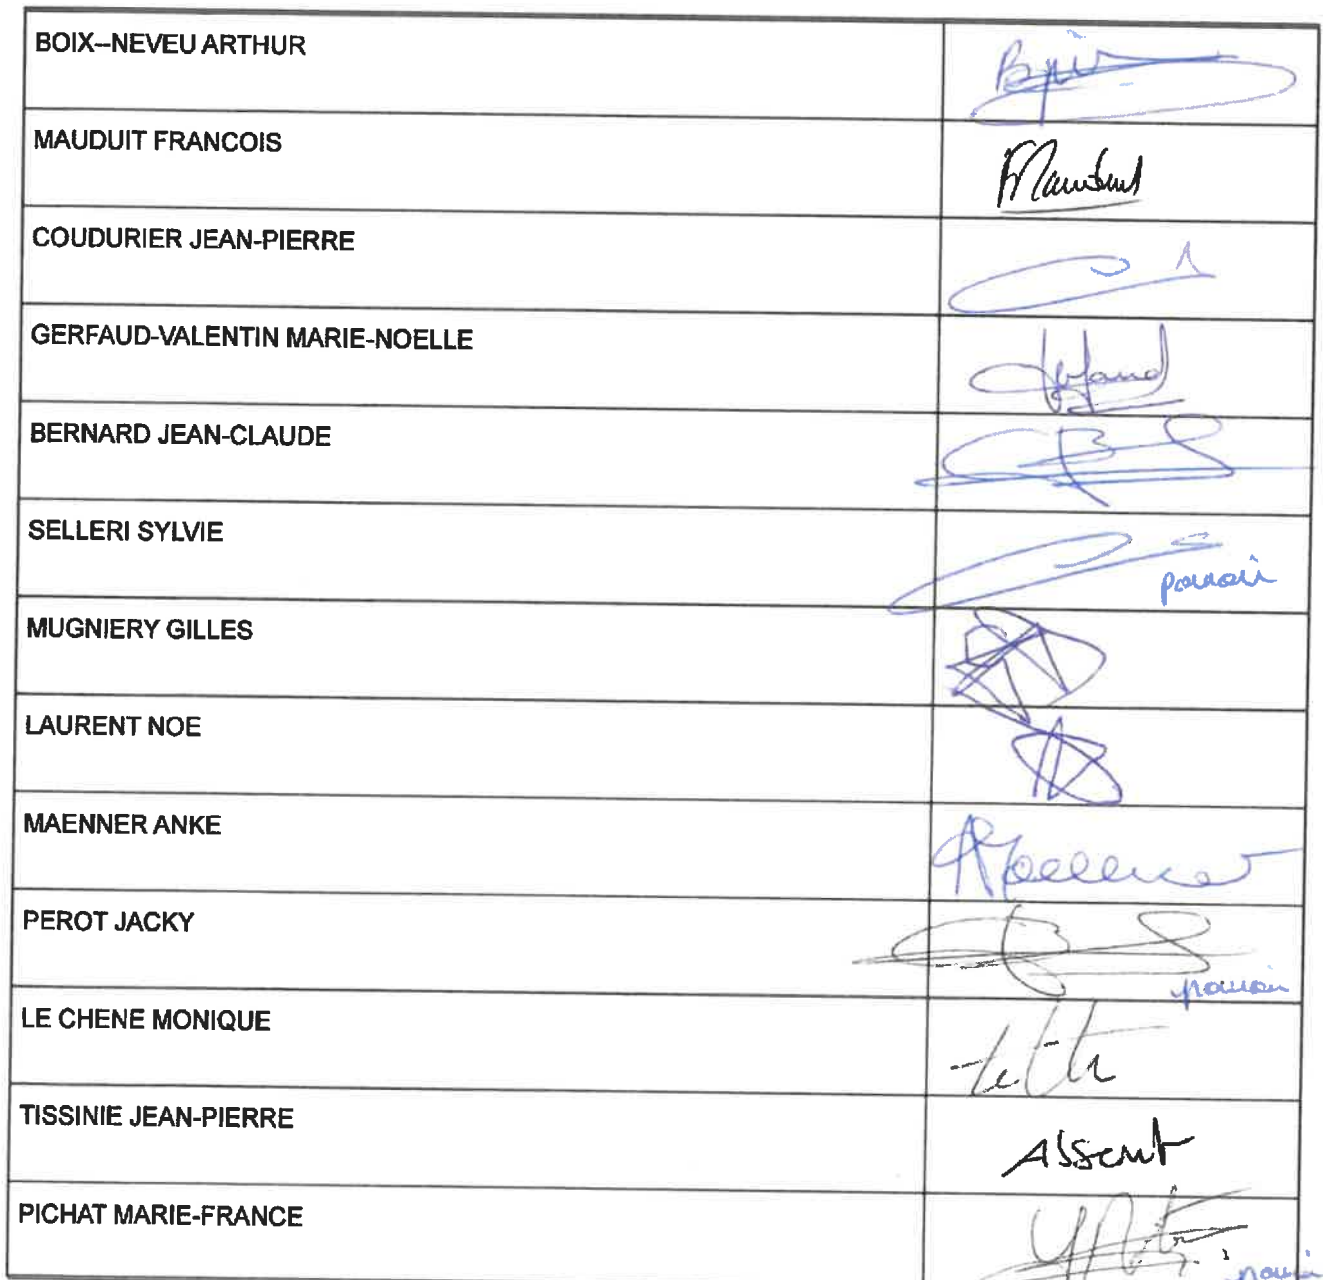 BOIX--NEVEU ARTHUR
MAUDUIT FRANCOIS
COUDURIER JEAN-PIERRE
GERFAUD-VALENTIN MARIE-NOELLE
BERNARD JEAN-CLAUDE
SELLERI SYLVIE
pouvoir
MUGNIERY GILLES
LAURENT NOE
MAENNER ANKE
PEROT JACKY
pouvoir
LE CHENE MONIQUE
TISSINIE JEAN-PIERRE
Absent
PICHAT MARIE-FRANCE
pouvoir